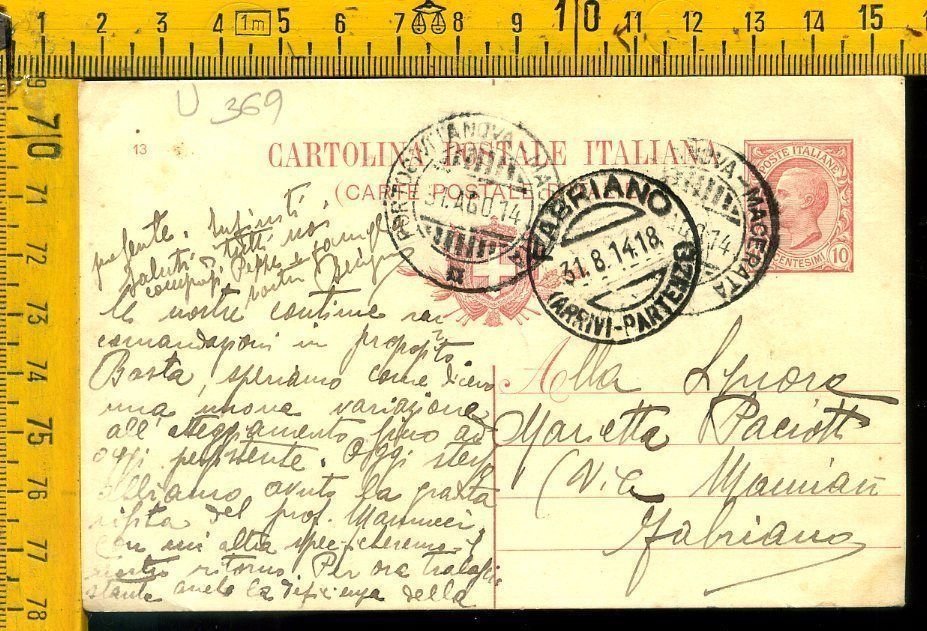 1 2 3 4 1m 5 6 7 8 9 10 11 12 13 14 15
9
70
71
72
73
74
75
76
77
78
U 369
13
CARTOLINA POSTALE ITALIANA
(CARTE POSTALE
PORTOCIVITANOVA MAC
31.AGO.14
FABRIANO
31.8.14.18
(ARRIVI-PARTENZE)
NOVA-MACERATA
POSTE ITALIANE
CENTESIMI 10
saluti tutti noi
le nostre continue rac
comandazioni in proposito.
Basta, speriamo come dicevo
una nuova variazione
all'atteggiamento fino ad
oggi persistente. Oggi stesso
abbiamo avuto la gradita
visita del prof. Mannucci.
Con mi altra specificheremo il
nostro ritorno. Per ora tralascio
stante anche la deficienza della
Alla Signora
Marietta Paciotti
(Via Mamiani
Fabriano